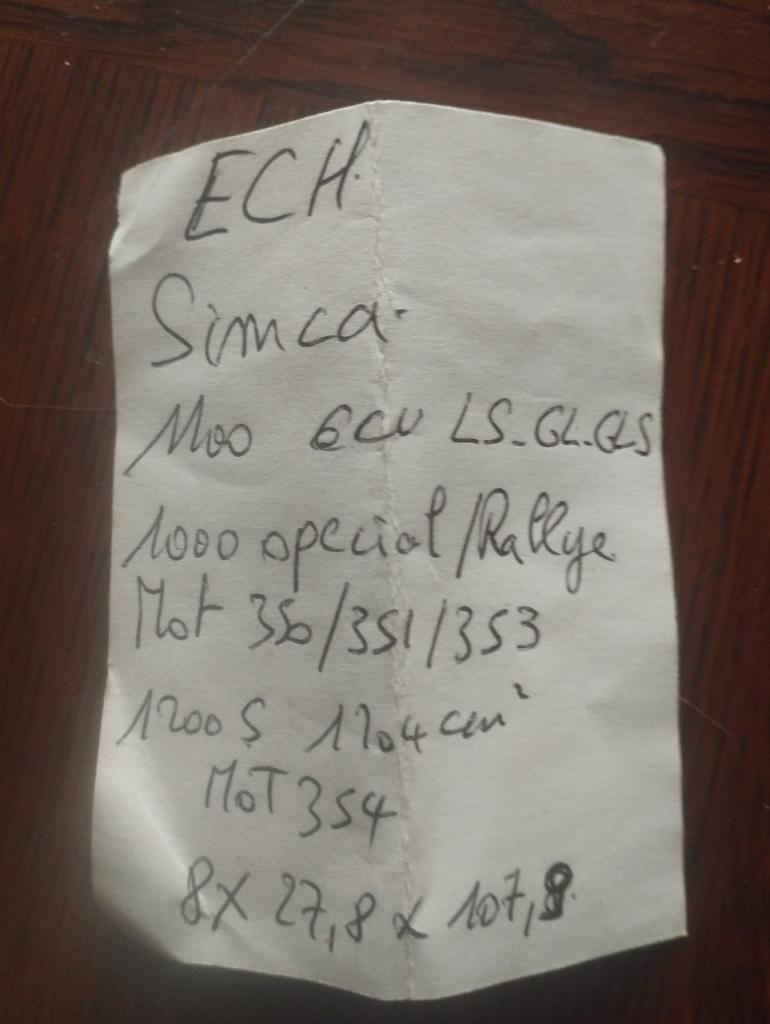 ECH.
Simca.
1100 6CV LS-GL-GLS
1000 special/Rallye
Mot 350/351/353
1200S 1204 cm²
MoT 354
8x 27,8 x 107,8